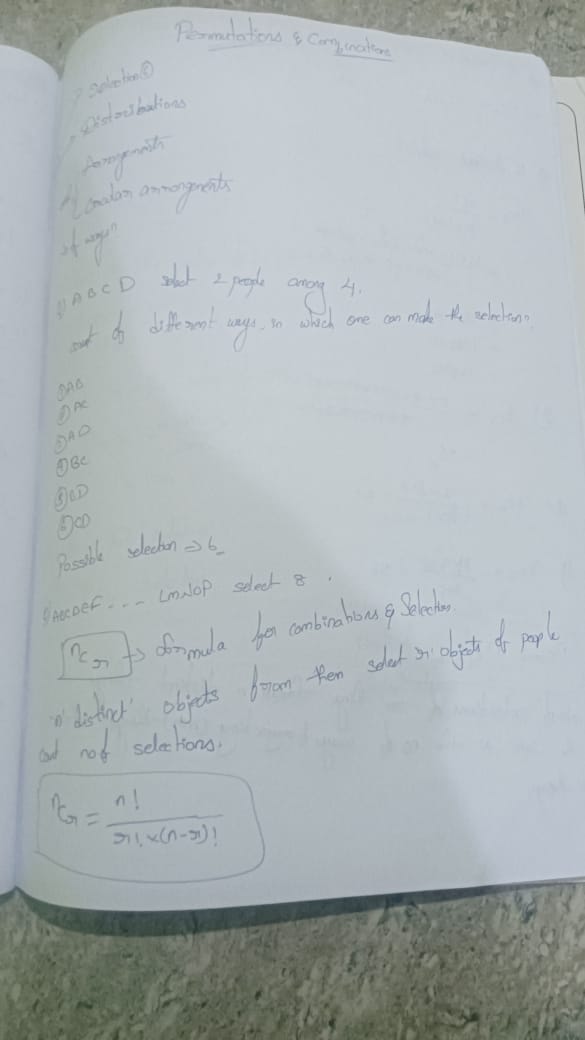 Permutations & Combinations
Selection
Distoributions
Arrangements
Circular arrangements
1) A B C D select 2 people among 4.
count of different ways in which one can make the selections
① AB
② AC
③ AD
④ BC
⑤ CD
⑥ CD
Possible selection ⇒ 6
ABCDEF --- LMNOP select 8.
nCr → formula for combinations & Selection.
'n' distinct objects from them select 'r' objects of people
out no of selections.
nCr = n! / r! x (n-r)!